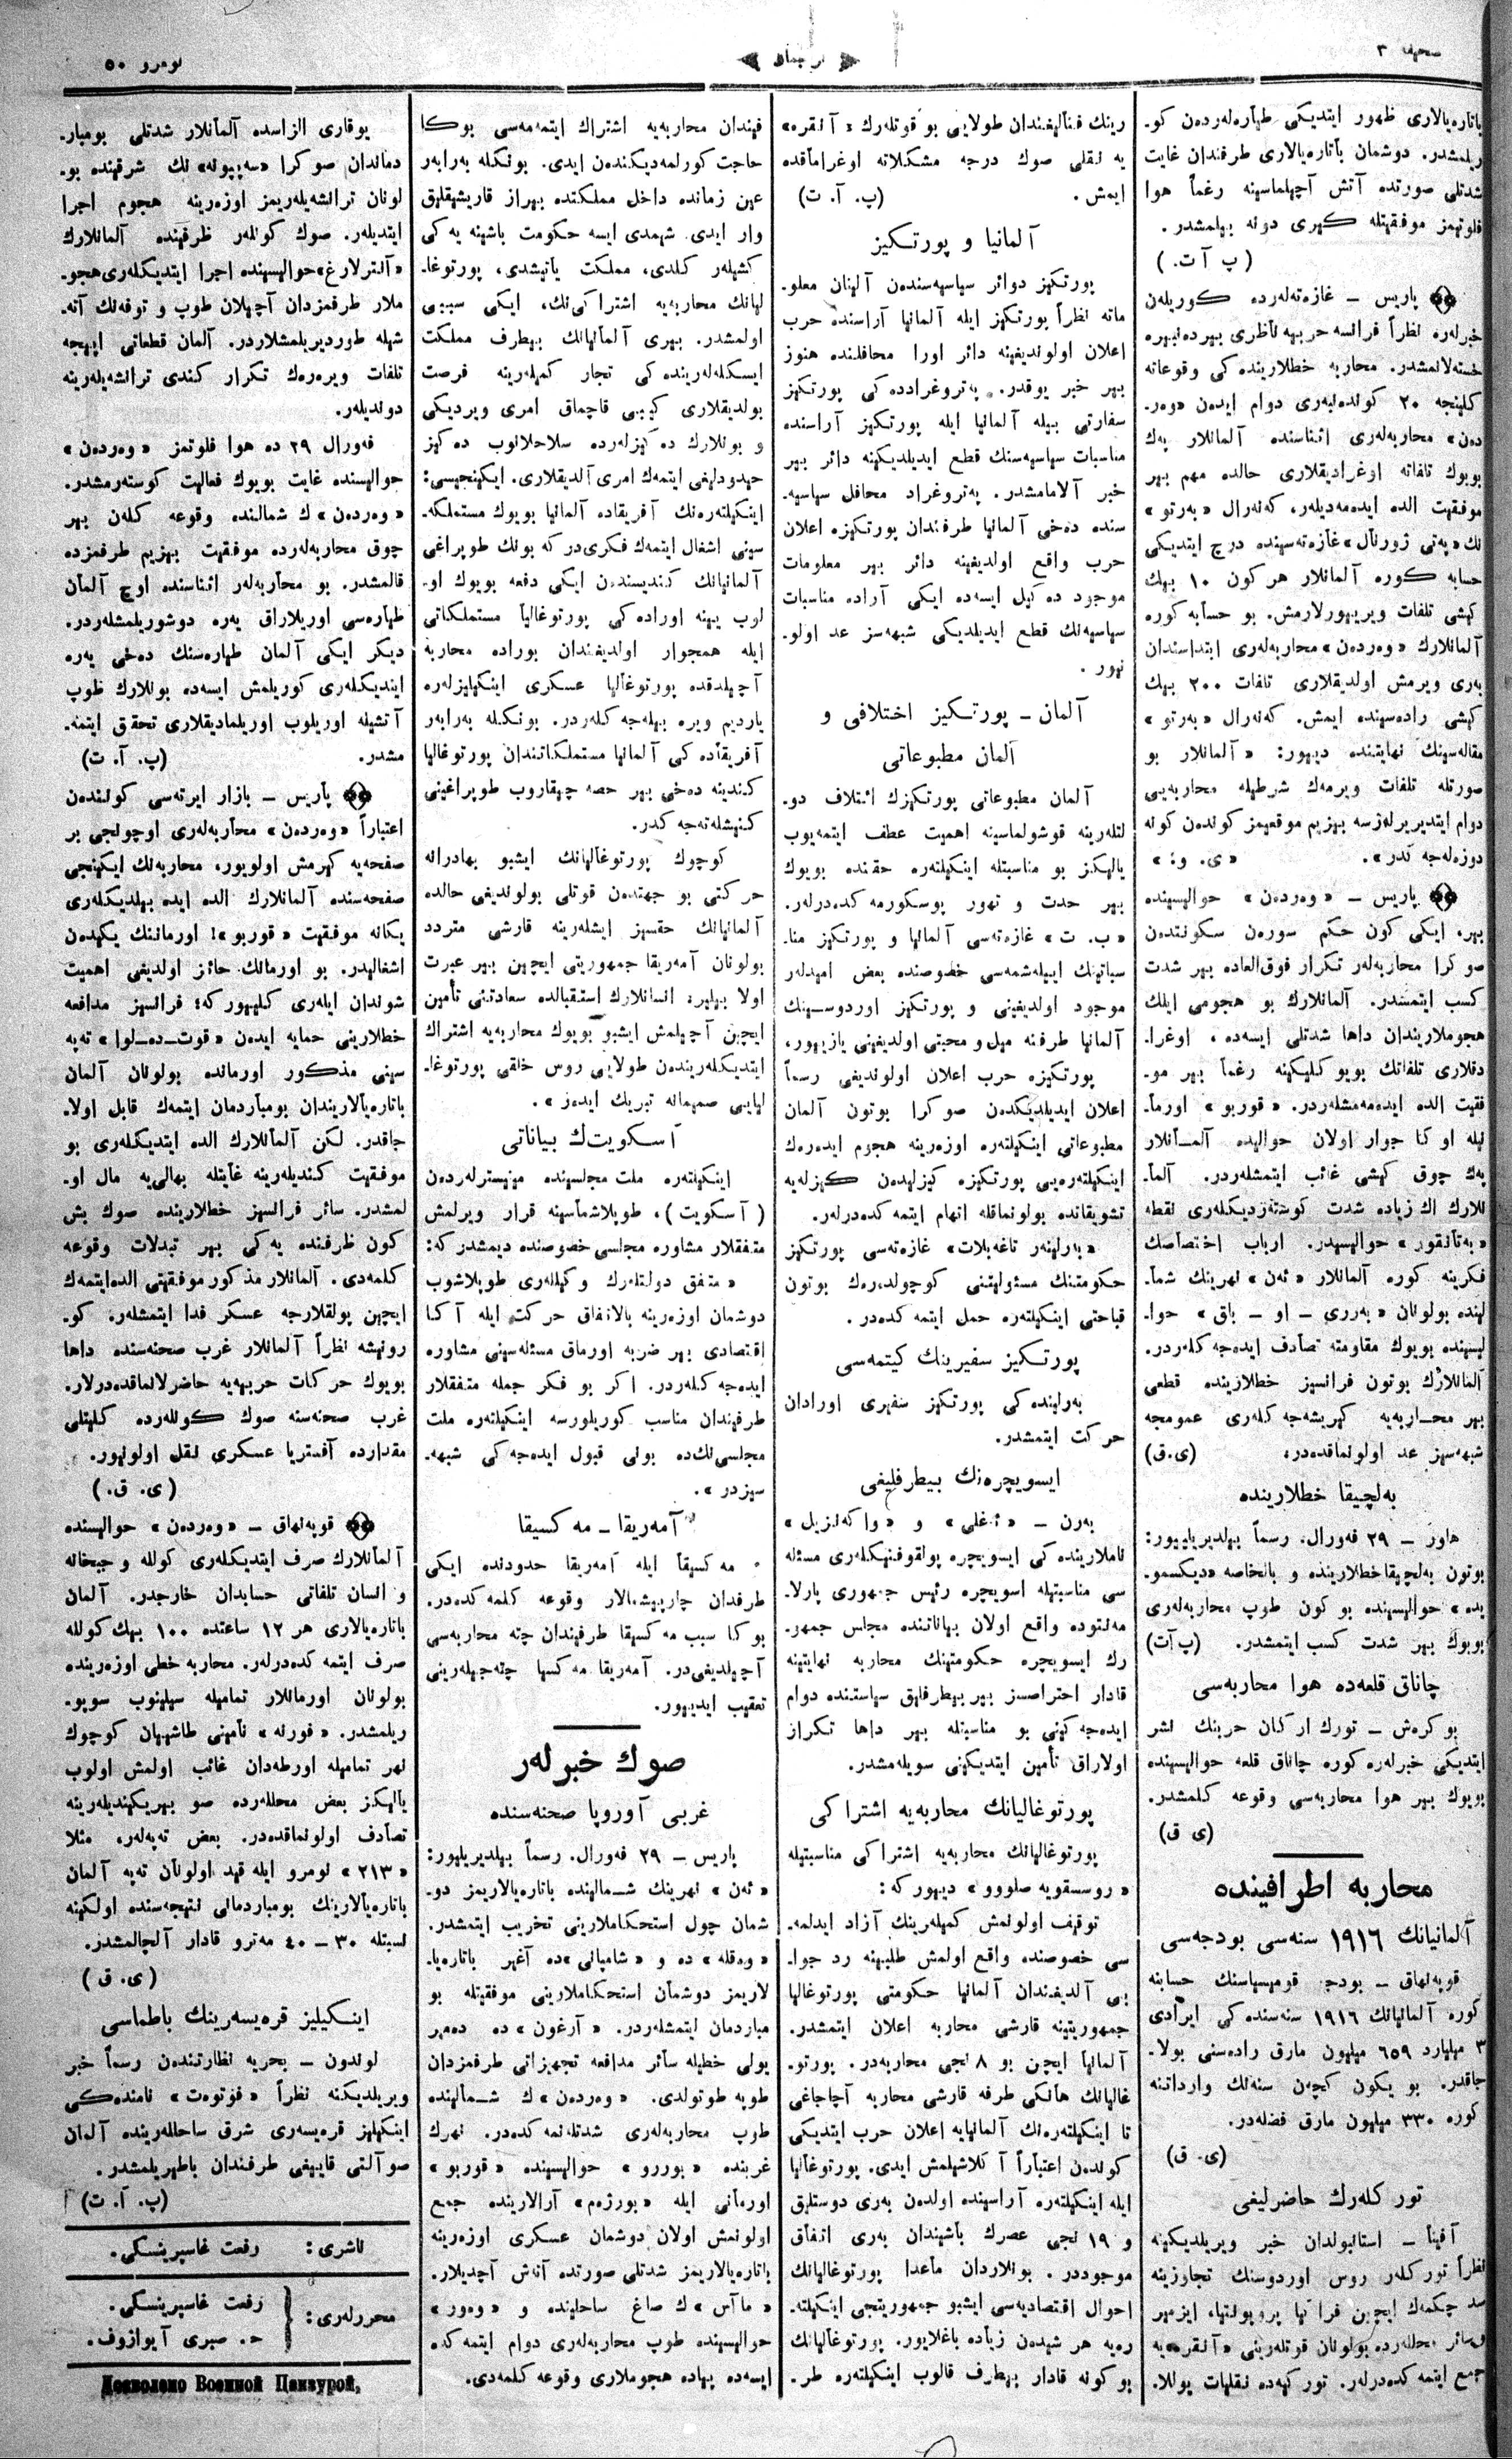 صحیفه ۳
ترجمان
نومرو ۵۰
باتاره‌یالاری ظهور ایتدیکی طیاره‌لەردن کو-
ریلمشدر. دوشمان باتاره‌یالاری طرفندان غایت
شدتلی صورتده آتش آچیلماسینه رغماً هوا
فلوتیمز موفقیتله کیری دونه بیلمشدر.
(پ آ ت.)
پاریس – غازه‌ته‌لەرده کوریلەن
خبرلەره نظراً فرانسه حربیه ناظری بیردەنبیره
خسته‌لانمشدر. محاربه خطلارینده کی وقوعاته
کلینجه ۲۰ کوندەنبەری دوام ایدەن «وەر-
دەن» محاربه‌لەری اثناسنده آلمانلار پەك
بویوك تلفاته اوغرادیقلاری حالده مهم بیر
موفقیت الده ایده‌مه‌دیلەر، کەنەرال «بەرتو»
نك «پەتی ژورنال» غازه‌ته‌سینده درج ایتدیکی
حسابه کوره آلمانلار هر کون ۱۰ بیك
کیشی تلفات ویرییورلارمش. بو حسابه کوره
آلمانلارك «وەردەن» محاربه‌لەری ابتداسندان
بەری ویرمش اولدیقلاری تلفات ۲۰۰ بیك
کیشی راده‌سینده ایمش. کەنەرال «بەرتو»
مقاله‌سینك نهایتنده دییور: «آلمانلار بو
صورتله تلفات ویرمەك شرطیله محاربه‌یی
دوام ایتدیریرلەرسه بیزیم موقعیمز کوندەن کونه
دوزەلەجەکدر».
پاریس – «وەردەن» حوالیسینده
بیر، ایکی کون حکم سورەن سکونتدەن
صوکرا محاربه‌لەر تکرار فوق‌العاده بیر شدت
کسب ایتمشدر. آلمانلارك بو هجومی ایلك
هجوملاریندان داها شدتلی ایسەده، اوغرا-
دقلاری تلفاتك بویوکلیکینه رغماً بیر مو-
فقیت الده ایده‌مه‌مشلەردر. «قوربو» اورما-
نیله اوکا جوار اولان حوالیده آلمانلار
پەك چوق کیشی غائب ایتمشلەردر. آلما-
نلارك اك زیاده شدت کوسته‌ردیکلەری نقطه
حوالیسیدر. ارباب اختصاصك
فکرینه کوره آلمانلار «ئەن» نهرینك شما-
لینده بولونان «بەرری – او – باق» حوا-
لیسینده بویوك مقاومته تصادف ایده‌جەکلەردر.
آلمانلارك بوتون فرانسیز خطلارینده قطعی
بیر محاربه‌یه کیریشەجەکلەری عمومجه
شبهه‌سیز عد اولونماقده‌در. (ی.ق)
بەلچیقا خطلارینده
هاور – ۲۹ فەورال. رسماً بیلدیریلییور:
بوتون بەلچیقا خطلارینده و بالخاصه «دیکسمو-
یده» حوالیسینده بو کون طوپ محاربه‌لەری
بویوك بیر شدت کسب ایتمشدر. (پ آت)
چاناق قلعەده هوا محاربه‌سی
بوکرەش – تورك ارکان حربینك نشر
ایتدیکی خبرلەره کوره چاناق قلعه حوالیسینده
بویوك بیر هوا محاربه‌سی وقوعه کلمشدر.
(ی ق)
محاربه اطرافینده
آلمانیانك ۱۹۱۶ سنه‌سی بودجه‌سی
قوپەنهاق – بودجه قومیسیاسنك حسابنه
کوره آلمانیانك ۱۹۱۶ سنه‌سنده کی ایرادی
۳ میلیارد ۶۵۹ میلیون مارق راده‌سنی بولا-
جاقدر. بو یکون کچەن سنەنك وارداتنه
کوره ۳۳۰ میلیون مارق فضله‌در.
(ی. ق)
تورکلەرك حاضرلیغی
آفینا – استانبولدان خبر ویریلدیکینه
نظراً تورکلەر روس اوردوسنك تجاوزینه
سد چکمەك ایچین بولونتیا، ایزمیر
وسائر محللەرده بولونان قوتلەرینی «آنقره»یه
جمع ایتمه‌کده‌درلەر. تورکیه‌ده نقلیات یوللا-
رینك فنالیغندان طولایی بو قوتلەرك «آنقره»
یه نقلی صوك درجه مشکلاته اوغراماقده
ایمش. (پ. آ. ت)
آلمانیا و پورتکیز
پورتکیز دوائر سیاسیه‌سندەن آلینان معلو-
ماته نظراً پورتکیز ایله آلمانیا آراسنده حرب
اعلان اولوندیغینه دائر اورا محافلنده هنوز
بیر خبر یوقدر. پەتروغرادده کی پورتکیز
سفارتی بیله آلمانیا ایله پورتکیز آراسنده
مناسبات سیاسیه‌سنك قطع ایدیلدیکینه دائر بیر
خبر آلامامشدر. پەتروغراد محافل سیاسیه-
سنده دەخی آلمانیا طرفندان پورتکیزه اعلان
حرب واقع اولدیغینه دائر بیر معلومات
موجود دەکیل ایسەده ایکی آراده مناسبات
سیاسیەنك قطع ایدیلدیکی شبهه‌سز عد اولو-
نیور.
آلمان – پورتکیز اختلافی و
آلمان مطبوعاتی
آلمان مطبوعاتی پورتکیزك ائتلاف دو-
لتلەرینه قوشولماسینه اهمیت عطف ایتمەیوب
یالیکز بو مناسبتله اینکیلتەره حقنده بویوك
بیر حدت و تهور پوسکورمه‌کده‌درلەر.
«ب. ت» غازه‌ته‌سی آلمانیا و پورتکیز منا-
سباتینك ایییله‌شمه‌سی خصوصنده بعض امیدلەر
موجود اولدیغینی و پورتکیز اوردوسینك
آلمانیا طرفنه میل و محبتی اولدیغینی یازییور،
پورتکیزه حرب اعلان اولوندیغی رسماً
اعلان ایدیلدیکدەن صوکرا بوتون آلمان
مطبوعاتی اینکیلتەره اوزەرینه هجوم ایدەرەك
اینکیلتەره‌یی پورتکیزه کیزلیدەن کیزلەیه
تشویقاتده بولونماقله اتهام ایتمه‌کده‌درلەر.
«بەرلینەر تاغەبلات» غازه‌ته‌سی پورتکیز
حکومتنك مسئولیتنی کوچولدەرەك بوتون
قباحتی اینکیلتەره حمل ایتمه‌کده‌در.
پورتکیز سفیرینك کیتمه‌سی
بەرلینده کی پورتکیز سفیری اورادان
حرکت ایتمشدر.
ایسویچرەنك بیطرفلیغی
بەرن – «ئەغلی» و «واکەنزیل»
ناملارینده کی ایسویچره پولقوفنیکلەری مسئله
سی مناسبتیله اسویچره رئیس جمهوری پارلا-
مەنتوده واقع اولان بیاناتنده مجلس جمهو-
رك ایسویچره حکومتینك محاربه نهایتینه
قادار احتراصسز بیر بیطرفلیق سیاستنده دوام
ایده‌جەکینی بو مناسبتله بیر داها تکرار
اولاراق تأمین ایتدیکینی سویله‌مشدر.
پورتوغالیانك محاربه‌یه اشتراکی
پورتوغالیانك محاربه‌یه اشتراکی مناسبتیله
«روسسقویه صلووو» دییورکه:
توقیف اولونمش کمیلەرینك آزاد ایدلمه-
سی خصوصنده واقع اولمش طلبینه رد جوا-
بی آلدیغندان آلمانیا حکومتی پورتوغالیا
جمهوریتینه قارشی محاربه اعلان ایتمشدر.
آلمانیا ایچین بو ۸ نجی محاربه‌در. پورتو-
غالیانك هانکی طرفه قارشی محاربه آچاجاغی
تا اینکیلتەرەنك آلمانیایه اعلان حرب ایتدیکی
کوندەن اعتباراً آکلاشیلمش ایدی. پورتوغالیا
ایله اینکیلتەره آراسینده اولدەن بەری دوستلیق
و ۱۹ نجی عصرك باشیندان بەری اتفاق
موجوددر. بونلاردان ماعدا پورتوغالیانك
احوال اقتصادیه‌سی ایشبو جمهوریتی اینکیلته-
رەیه هر شیدەن زیاده باغلایور. پورتوغالیانك
بو کونه قادار بیطرف قالوب اینکیلتەره طر-
فیندان محاربه‌یه اشتراك ایتمه‌مه‌سی بوکا
حاجت کورلمه‌دیکندەن ایدی. بونکله بەرابەر
عین زمانده داخل مملکتده بیراز قاریشیقلیق
وار ایدی. شیمدی ایسه حکومت باشینه یەکی
کشیلەر کلدی، مملکت یاتیشدی، پورتوغا-
لیانك محاربه‌یه اشتراکی‌نك، ایکی سببی
اولمشدر. بیری آلمانیانك بیطرف مملکت
ایسکله‌لەرینده کی تجار کمیلەرینه فرصت
بولدیقلاری کیبی قاچماق امری ویردیکی
و بونلارك دەکیزلەرده سلاحلانوب دەکیز
حیدودلیغی ایتمەك امری آلدیقلاری. ایکینجیسی:
اینکیلتەرەنك آفریقاده آلمانیا بویوك مستملکه-
سینی اشغال ایتمەك فکری‌درکه بونك طوپراغی
آلمانیانك کندیسندەن ایکی دفعه بویوك او-
لوب یینه اوراده کی پورتوغالیا مستملکاتی
ایله همجوار اولدیغندان بوراده محاربه
آچیلدقده پورتوغالیا عسکری اینکیلیزلەره
یاردیم ویره بیله‌جەکلەردر. بونکله بەرابەر
آفریقاده کی آلمانیا مستملکاتندان پورتوغالیا
کندینه دەخی بیر حصه چیقاروب طوپراغینی
کنیشلەتەجەکدر.
کوچوك پورتوغالیانك ایشبو بهادرانه
حرکتی بو جهتدەن قوتلی بولوندیغی حالده
آلمانیانك حقسیز ایشلەرینه قارشی متردد
بولونان آمەریقا جمهوریتی ایچین بیر عبرت
اولا بیلیر؛ انسانلارك استقبالده سعادتنی تأمین
ایچین آچیلمش ایشبو بویوك محاربه‌یه اشتراك
ایتدیکلەریندەن طولایی روس خلقی پورتوغا-
لیایی صمیمانه تبریك ایدەر».
آسکویت‌ك بیاناتی
اینکیلتەره ملت مجلسینده مینیسترلەردەن
(آسکویت)، طوپلاشماسینه قرار ویرلمش
متفقلار مشاوره مجلسی خصوصنده دیمشدرکه:
«متفق دولتلەرك وکیللەری طوپلاشوب
دوشمان اوزەرینه بالاتفاق حرکت ایله آکا
اقتصادی بیر ضربه اورماق مسئله‌سینی مشاوره
ایده‌جەکلەردر. اکر بو فکر جمله متفقلار
طرفیندان مناسب کوریلورسه اینکیلتەره ملت
مجلسی‌نك‌ده بونی قبول ایده‌جەکی شبهه-
سیزدر».
آمەریقا – مەکسیقا
مەکسیقا ایله آمەریقا حدودنده ایکی
طرفدان چارپیشمالار وقوعه کلمه‌کده‌در.
بوکا سبب مەکسیقا طرفیندان چته محاربه‌سی
آچیلدیغی‌در. آمەریقا مەکسیقا چته‌جیلەرینی
تعقیب ایدییور.
صوك خبرلەر
غربی آوروپا صحنه‌سنده
پاریس – ۲۹ فەورال. رسماً بیلدیریلیور:
«ئەن» نهرینك شمالینده باتاره‌یالاریمز دو-
شمان چول استحکاملارینی تخریب ایتمشدر.
ده و «شامپانی»ده آغیر باتاره‌یا-
لاریمز دوشمان استحکاملارینی موفقیتله بو
مباردمان ایتمشلەردر. «آرغون»ده دەمیر
یولی خطیله سائر مدافعه تجهیزاتی طرفمزدان
طوپه طوتولدی. «وەردەن»ك شمالینده
طوپ محاربه‌لەری شدتلەنمه‌کده‌در. نهرك
غربنده «بوررو» حوالیسینده «قوربو»
اورمانی ایله آرالارینده جمع
اولونمش اولان دوشمان عسکری اوزەرینه
باتاره‌یالاریمز شدتلی صورتده آتش آچدیلار.
«ماآس»ك صاغ ساحلینده و «وەور»
حوالیسینده طوپ محاربه‌لەری دوام ایتمه‌کده
ایسەده پیاده هجوملاری وقوعه کلمەدی.
یوقاری الزاسده آلمانلار شدتلی بومبار-
دماندان صوکرا نك شرقینده بو-
لونان ترانشەیلەریمز اوزەرینه هجوم اجرا
ایتدیلەر. صوك کونلەر ظرفینده آلمانلارك
حوالیسینده اجرا ایتدیکلەری هجو-
ملار طرفمزدان آچیلان طوپ و توفەنك آته-
شیله طوردیریلمشلاردر. آلمان قطعاتی ایییجه
تلفات ویرەرەك تکرار کندی ترانشەیلەرینه
دوندیلەر.
فەورال ۲۹ ده هوا فلوتمز «وەردەن»
حوالیسنده غایت بویوك فعالیت کوستەرمشدر.
«وەردەن»ك شمالنده وقوعه کلەن بیر
چوق محاربه‌لەرده موفقیت بیزیم طرفمزده
قالمشدر. بو محاربه‌لەر اثناسنده اوچ آلمان
طیاره‌سی اوریلاراق یەره دوشوریلمشلەردر.
دیکر ایکی آلمان طیاره‌سنك دەخی یەره
ایندیکلەری کوریلمش ایسەده بونلارك طوپ
آتشیله اوریلوب اوریلمادیقلاری تحقق ایتمه-
مشدر. (پ. آ. ت)
پاریس – بازار ایرتەسی کونندەن
اعتباراً «وەردەن» محاربه‌لەری اوچونجی بر
صفحه‌یه کیرمش اولویور، محاربەنك ایکینجی
صفحه‌سنده آلمانلارك الده ایده بیلدیکلەری
یکانه موفقیت «قوربو»! اورماننك یکیدەن
اشغالیدر. بو اورمانك حائز اولدیغی اهمیت
شوندان ایلەری کلییورکه؛ فرانسیز مدافعه
خطلارینی حمایه ایدەن «قوت–دە–لوا» تەپه
سینی مذکور اورمانده بولونان آلمان
باتاره‌یالاریندان بومباردمان ایتمەك قابل اولا-
جاقدر. لکن آلمانلارك الده ایتدیکلەری بو
موفقیت کندیلەرینه غایتله بهالی‌یه مال او-
لمشدر. سائر فرانسیز خطلارینده صوك بش
کون ظرفنده یەکی بیر تبدلات وقوعه
کلمەدی. آلمانلار مذکور موفقیتی الده‌ایتمەك
ایچین پولقلارجه عسکر فدا ایتمشلەر. کو-
رونیشه نظراً آلمانلار غرب صحنه‌سنده داها
بویوك حرکات حربیه‌یه حاضرلانماقده‌درلار.
غرب صحنه‌سنه صوك کونلەرده کلیتلی
مقدارده آفستریا عسکری نقل اولونیور.
(ی. ق.)
قوپەنهاق – «وەردەن» حوالیسنده
آلمانلارك صرف ایتدیکلەری کولله و جبخانه
و انسان تلفاتی حسابدان خارجدر. آلمان
باتاره‌یالاری هر ۱۲ ساعتده ۱۰۰ بیك کولله
صرف ایتمه‌کده‌درلەر. محاربه خطی اوزەرینده
بولونان اورمانلار تمامیله سیلینوب سوپو-
ریلمشدر. «فورنه» نامینی طاشییان کوچوك
نهر تمامیله اورطه‌دان غائب اولمش اولوب
یالیکز بعض محللەرده صو بیریکیندیلەرینه
تصادف اولونماقده‌در. بعض تەپه‌لەر، مثلا
«۲۱۳» نومرو ایله قید اولونان تەپه آلمان
باتاره‌یالارینك بومباردمانی نتیجه‌سنده اولکینه
نسبتله ۳۰ – ۴۰ مەترو قادار آلچالمشدر.
(ی. ق)
اینکیلیز قرەیسەرینك باطماسی
لوندون – بحریه نظارتندەن رسماً خبر
ویریلدیکنه نظراً «فوتوەت» نامنده‌کی
اینکیلیز قرەیسەری شرق ساحللەرینده آلمان
صوآلتی قاییغی طرفندان باطیریلمشدر.
(پ. آ. ت)
ناشری: رفعت غاسپرینسکی.
محررلەری: رفعت غاسپرینسکی.
ح. صبری آیوازوف.
Дозволено Военной Цензурой,